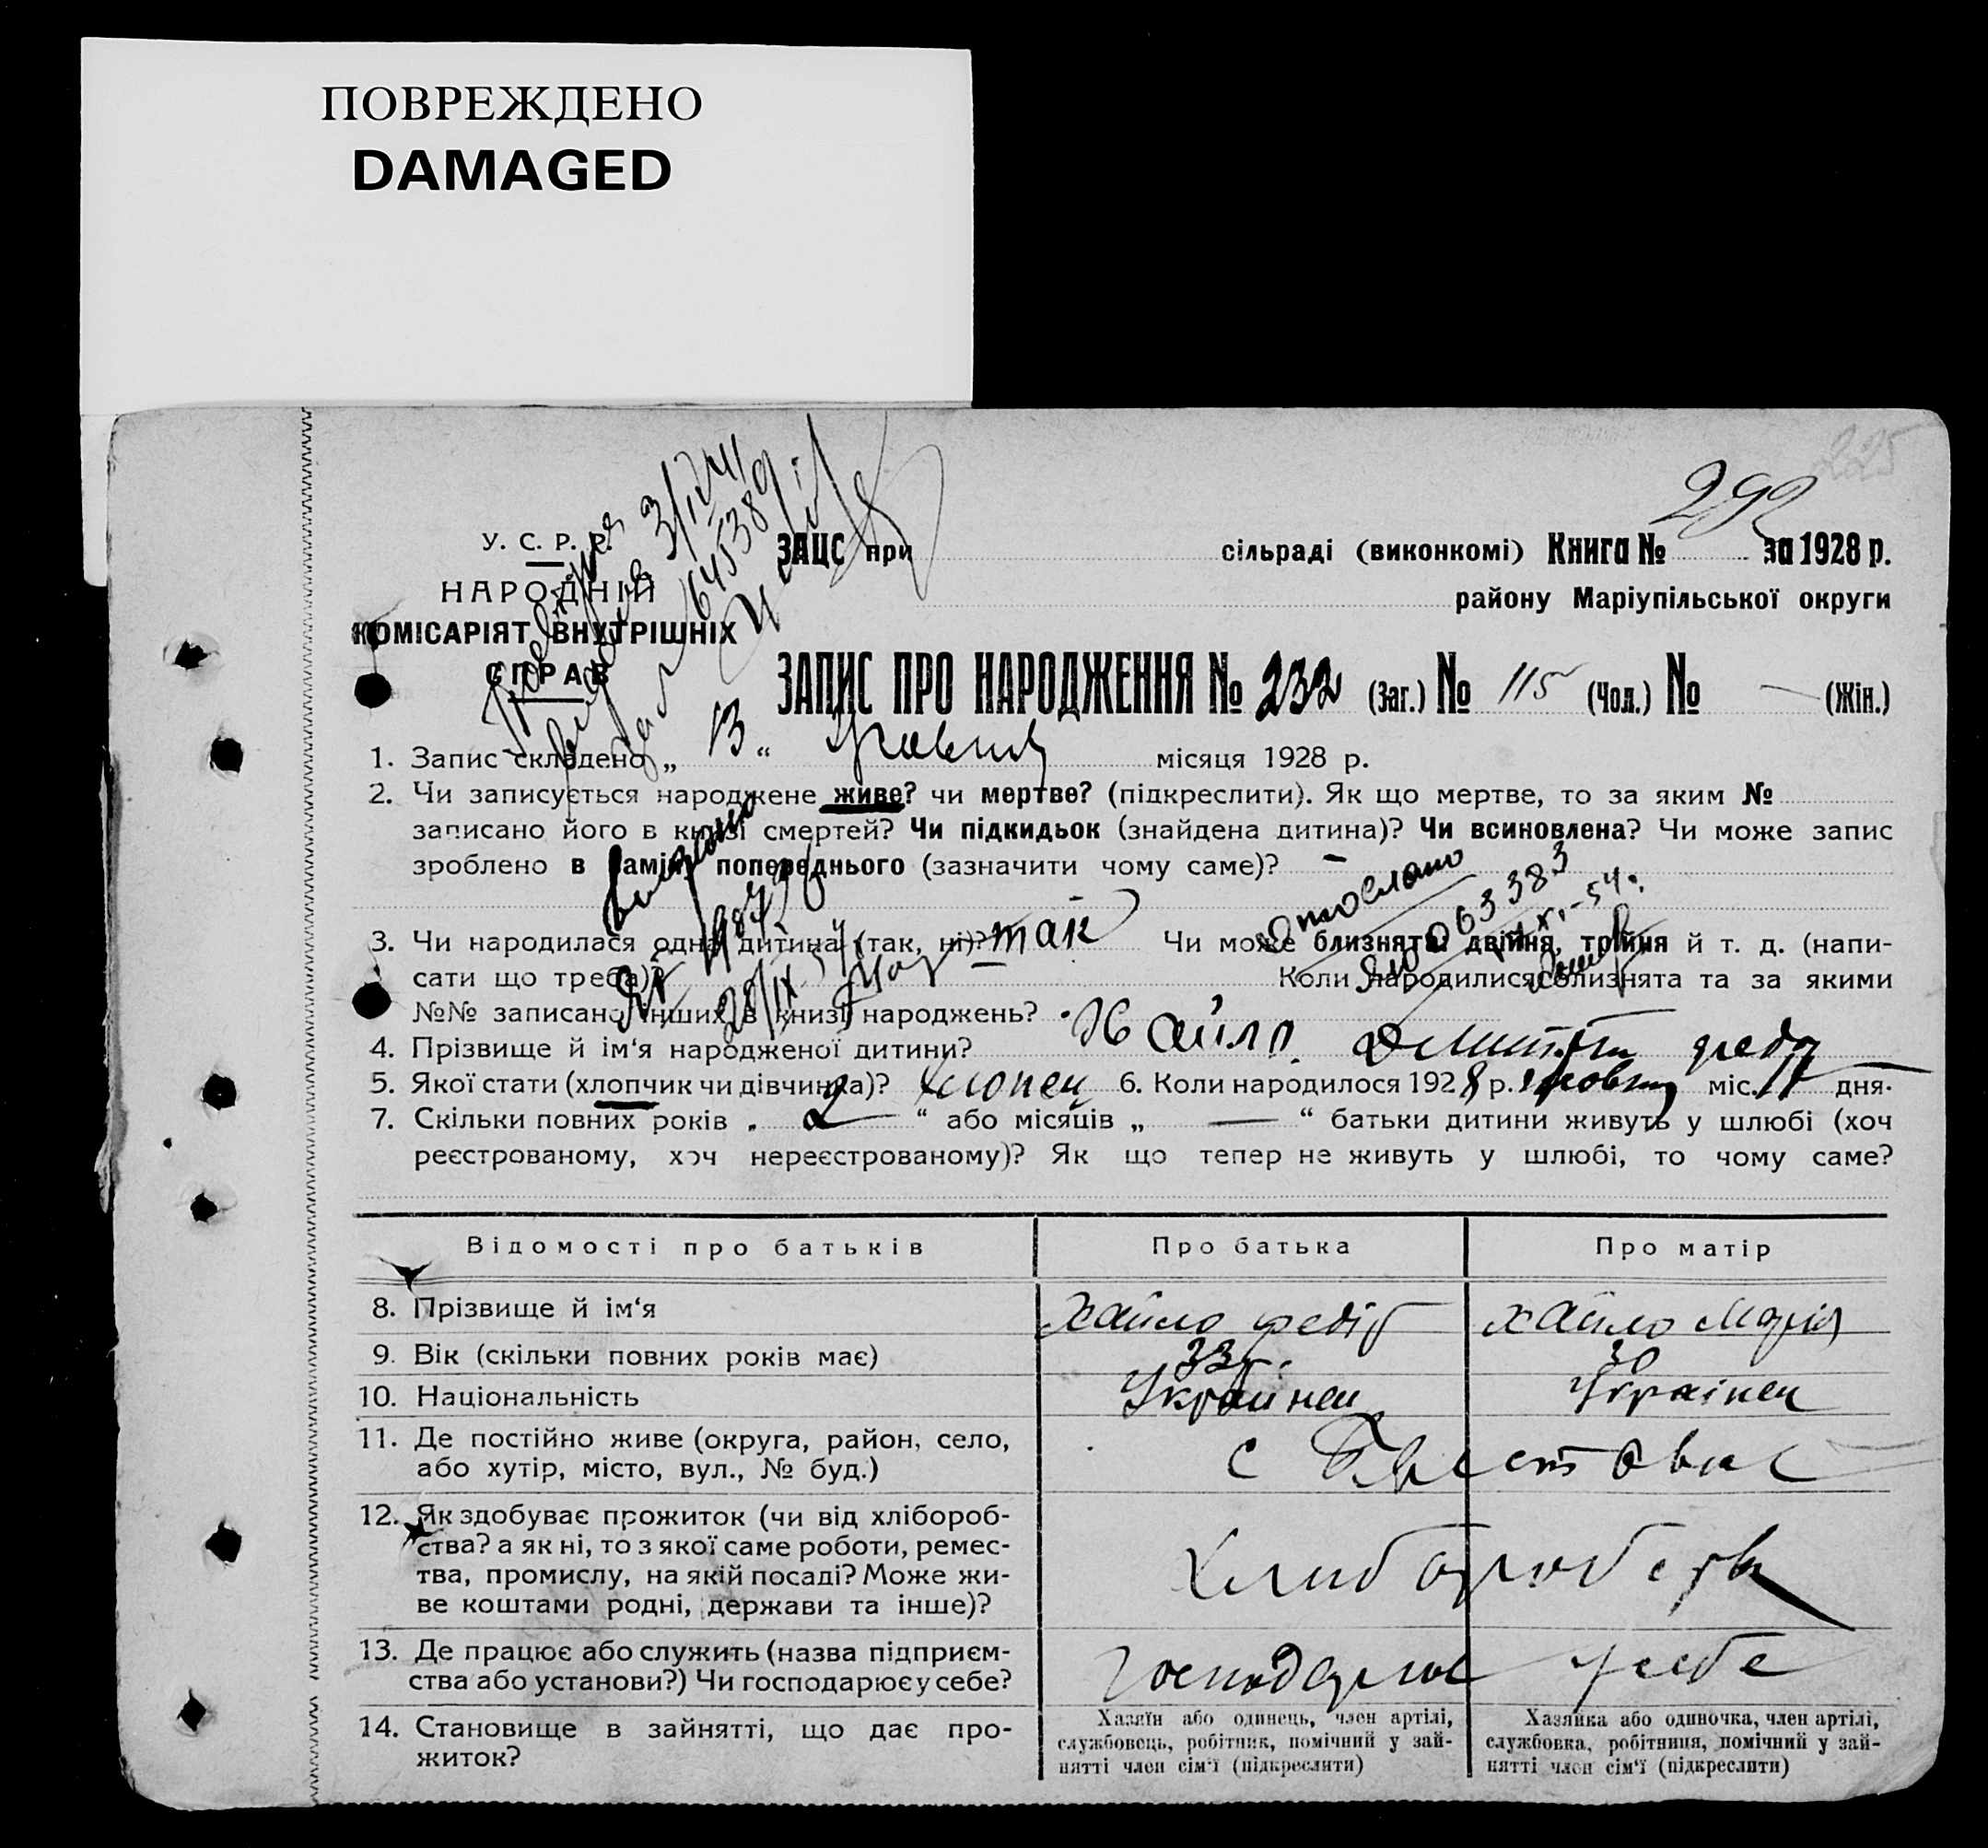 ПОВРЕЖДЕНО
DAMAGED
225
292
У. С. Р. Р.
НАРОДНІЙ
КОМІСАРІЯТ ВНУТРІШНІХ
СПРАВ
ЗАЦС при сільраді (виконкомі) Книга № за 1928 р.
району Маріупільської округи
3/IV 41
645389
ЗАПИС ПРО НАРОДЖЕННЯ № 232 (Заг.) № 115 (Чол.) № — (Жін.)
1. Запис складено „ 13 “ місяця 1928 р.
2. Чи записується народжене живе? чи мертве? (підкреслити). Як що мертве, то за яким №
записано його в книзі смертей? Чи підкидьок (знайдена дитина)? Чи всиновлена? Чи може запис
зроблено в замін попереднього (зазначити чому саме)? –
отослано
063383
3. Чи народилася одна дитина (так, ні)? так Чи може близнята: двійня, трійня й т. д. (напи-
сати що треба)? Коли народилися близнята та за якими
№№ записано інших в книзі народжень?
4. Прізвище й ім‘я народженої дитини? Хайло Дмитрій
5. Якої стати (хлопчик чи дівчинка)? хлопец 6. Коли народилося 1928 р. міс. 11 дня.
7. Скільки повних років „ 2 “ або місяців „ — “ батьки дитини живуть у шлюбі (хоч
реєстрованому, хоч нереєстрованому)? Як що тепер не живуть у шлюбі, то чому саме?
Відомості про батьків Про батька Про матір
8. Прізвище й ім‘я Хайло Федір Хайло Марія
9. Вік (скільки повних років має) 33 30
10. Національність Українец Українец
11. Де постійно живе (округа, район, село,
або хутір, місто, вул., № буд.) с
12. Як здобуває прожиток (чи від хлібороб-
ства? а як ні, то з якої саме роботи, ремес-
тва, промислу, на якій посаді? Може жи-
ве коштами родні, держави та інше)?
13. Де працює або служить (назва підприєм-
ства або установи?) Чи господарює у себе? господарює у себе
14. Становище в зайнятті, що дає про-
житок?
Хазяїн або одинець, член артілі,
службовець, робітник, помічний у зай-
нятті член сім‘ї (підкреслити)
Хазяйка або одиночка, член артілі,
службовка, робітниця, помічний у зай-
нятті член сім‘ї (підкреслити)